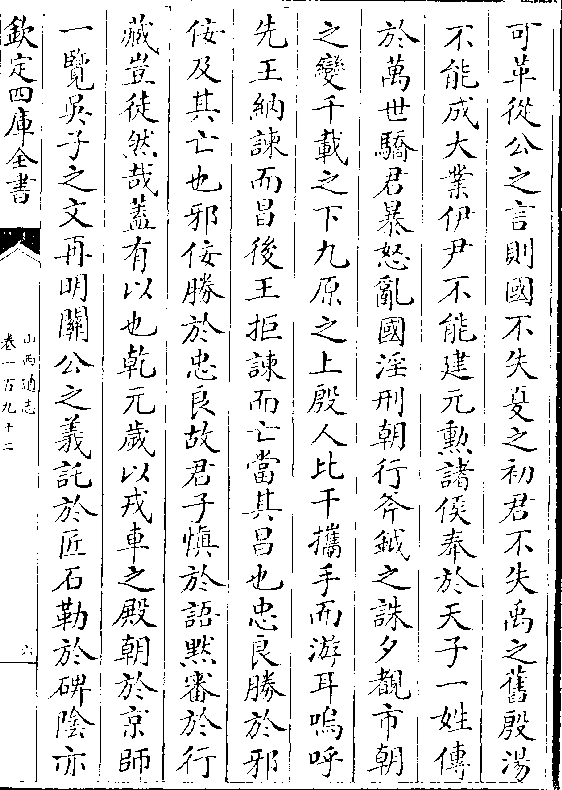 可革從公之言則國不失夏之初君不失禹之舊殷湯
不能成大業伊尹不能建元勲諸侯奉於天子一姓傳
於萬世驕君暴怒亂國淫刑朝行斧鉞之誅夕覩市朝
之變千載之下九原之上殷人比干攜手而游耳嗚呼
先王納諫而昌後王拒諫而亡當其昌也忠良勝於邪
佞及其亡也邪佞勝於忠良故君子慎於語黙審於行
藏豈徒然哉蓋有以也乾元歲以戎車之殿朝於京師
一覽吳子之文再明關公之義託於匠石勒於碑陰亦
欽定四庫全書
山西通志
卷一百九十二
六